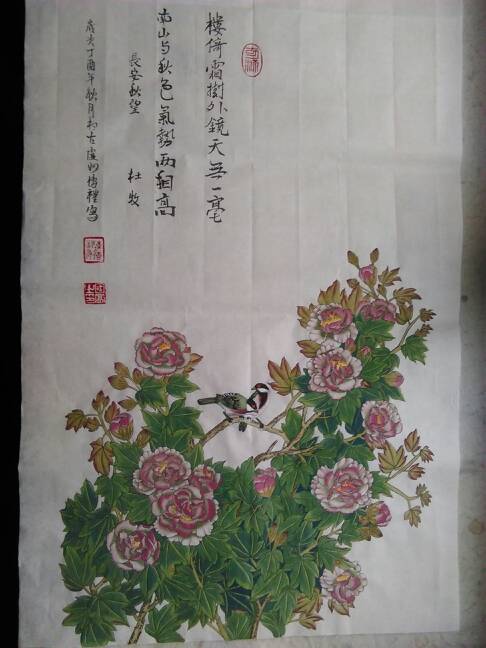 樓倚霜樹外鏡天無一毫
南山与秋色氣勢两相高
長安秋望 杜牧
歲次丁酉年秋月於古廬州禮寫